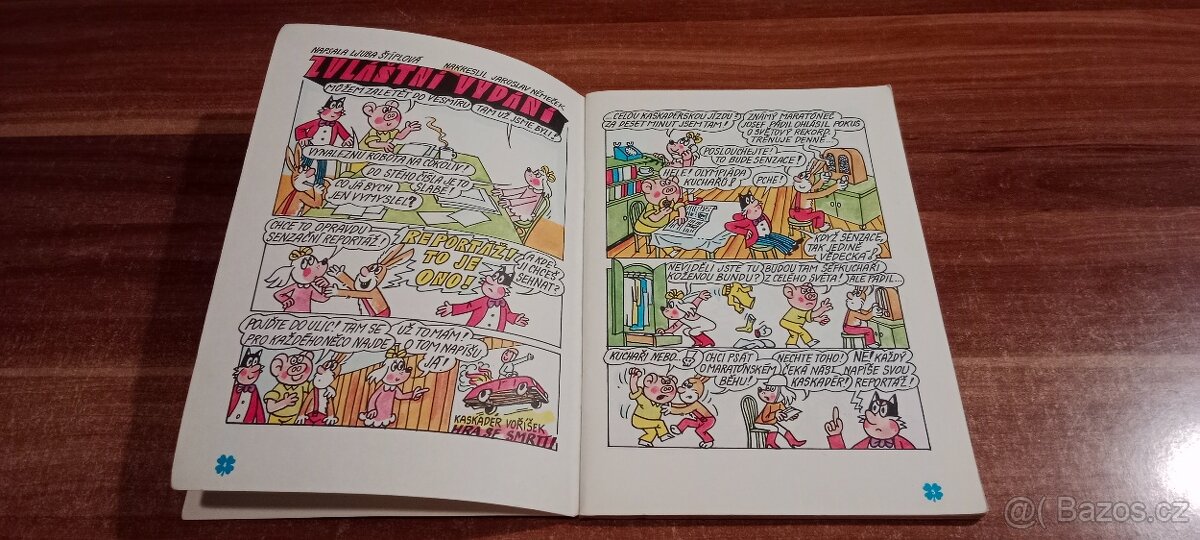 NAPSALA LJUBA ŠTÍPLOVÁ
NAKRESLIL JAROSLAV NĚMEČEK
ZVLÁŠTNÍ VYDÁNÍ
MŮŽEM ZALETĚT DO VESMÍRU
TAM UŽ JSME BYLI!
VYNALEZNU ROBOTA NA ČOKOLIV!
DO STÉHO ČÍSLA JE TO
SLABÉ!
CO JÁ BYCH
JEN VYMYSLEL?
CHCE TO OPRAVDU
SENZAČNÍ REPORTÁŽ!
REPORTÁŽ!
TO JE
ONO!
A KDE
JI CHCEŠ
SEHNAT?
POJĎTE DO ULIC! TAM SE
PRO KAŽDÉHO NĚCO NAJDE
UŽ TO MÁM!
O TOM NAPÍŠU
JÁ!
KASKADÉR VOŘÍŠEK
HRA SE SMRTÍ!
4
CELOU KASKADÉRSKOU JÍZDU?
ZA DESET MINUT JSEM TAM!
ZNÁMÝ MARATÓNEC
JOSEF PÁDIL OHLÁSIL POKUS
O SVĚTOVÝ REKORD.
TRÉNUJE DENNĚ..
POSLOUCHEJTE!
TO BUDE SENZACE!
HELE! OLYMPIÁDA
KUCHAŘŮ!
PCHE!
KDYŽ SENZACE,
TAK JEDINĚ
VĚDECKÁ!
NEVIDĚLI JSTE TU
KOŽENOU BUNDU?
BUDOU TAM ŠÉFKUCHAŘI
Z CELÉHO SVĚTA!
ALE PÁDIL...
KUCHAŘI NEBO
CHCI PSÁT
O MARATÓNSKÉM
BĚHU!
NECHTE TOHO!
ČEKÁ NÁS
KASKADÉR!
NE! KAŽDÝ
NAPÍŠE SVOU
REPORTÁŽ!
5
@( Bazos.cz